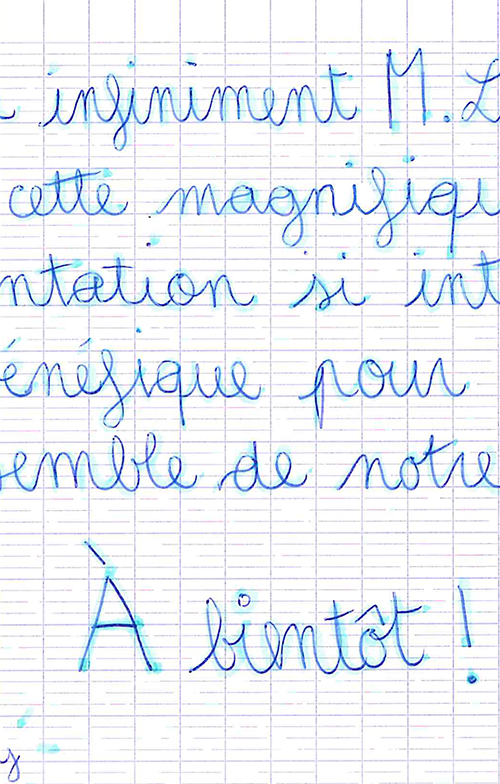 infiniment M. L
cette magnifiqu
ntation si int
énéfique pour
semble de notre
À bientôt !
s